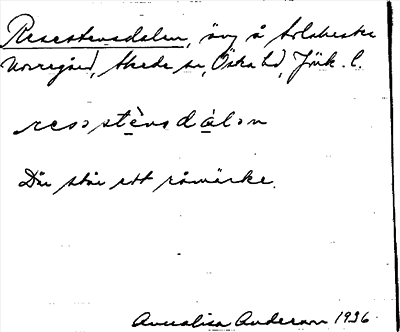 Resestensdalen, äng å Arlabecke
Norregård, Skede sn, Östra hd, Jönk. l.
resəste̱nsdɑ̱lən
Där står ett råmärke.
Annalisa Anderson 1936.